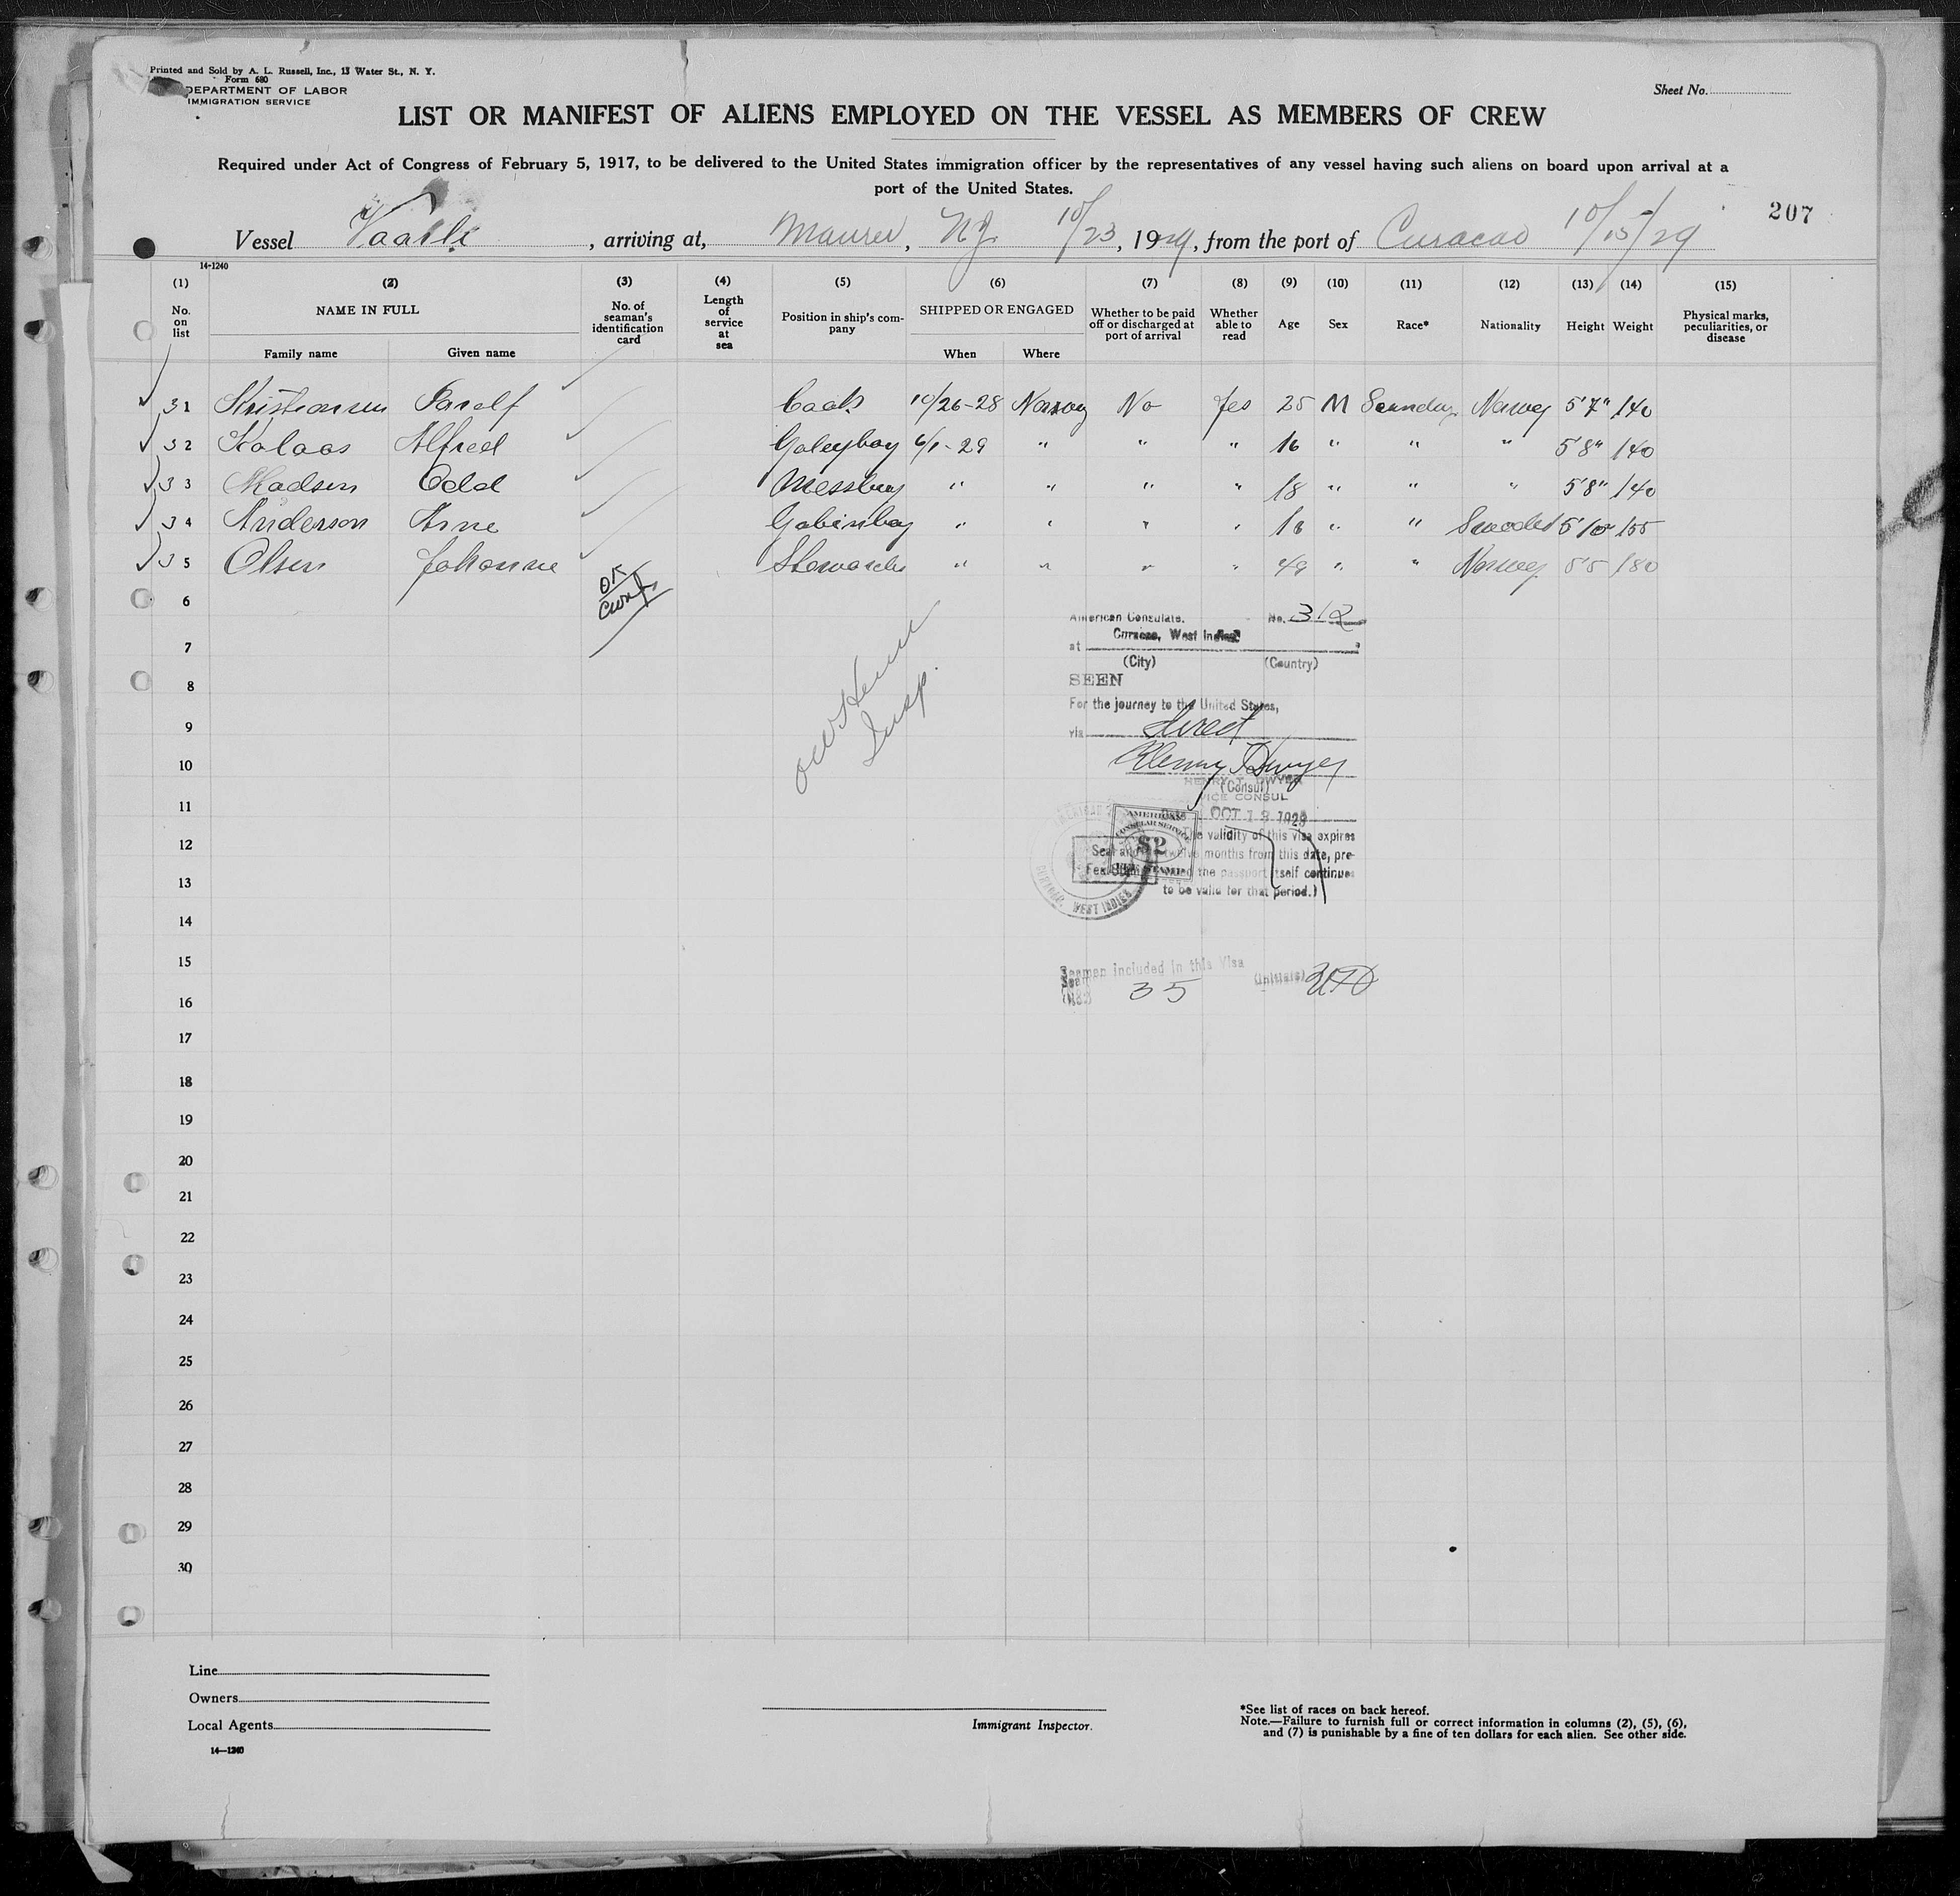 Printed and Sold by A. L. Russell, Inc., 13 Water St., N. Y.
Form 680
DEPARTMENT OF LABOR
IMMIGRATION SERVICE
Sheet No.
LIST OR MANIFEST OF ALIENS EMPLOYED ON THE VESSEL AS MEMBERS OF CREW
Required under Act of Congress of February 5, 1917, to be delivered to the United States immigration officer by the representatives of any vessel having such aliens on board upon arrival at a
port of the United States.
207
Vessel , arriving at, Maurer, NJ 10/23, 1929, from the port of Curacao 10/15/29
14-1240
(1) (2) (3) (4) (5) (6) (7) (8) (9) (10) (11) (12) (13) (14) (15)
No. on list NAME IN FULL No. of seaman's identification card Length of service at sea Position in ship's company SHIPPED OR ENGAGED Whether to be paid off or discharged at port of arrival Whether able to read Age Sex Race* Nationality Height Weight Physical marks, peculiarities, or disease
Family name Given name When Where
31 Kristiansen Cook 10/26-28 Norway No Yes 25 M Norway 5'7" 140
32 Kalaas Alfred Galeyboy 6/1-29 " " " 16 " " " 5'8" 140
33 Madsen Odd Messboy " " " " 18 " " " 5'8" 140
34 Anderson Arne " " " " 18 " " 5'10 155
35 Olsen Johanne " " " " 49 " " Norway 5'5 180
OK
6
American Consulate. No. 312
7
at Curacao, West Indies
(City) (Country)
8
SEEN
For the journey to the United States,
9
via direct
10
Henry T. Dwyer
HENRY T. DWYER
(Consul)
VICE CONSUL
Insp.
11
Date OCT 1929
AMERICAN
CONSULAR SERVICE
$2
FEE STAMP
The validity of this visa expires
12
Seal and twelve months from this date, pre-
Fee Stamp the passport itself continues
13
to be valid for that period.)
WEST INDIES
14
15
Seamen included in this Visa
35 (Initials)
16
17
18
19
20
21
22
23
24
25
26
27
28
29
30
Line
Owners
Local Agents
14—1240
Immigrant Inspector.
*See list of races on back hereof.
Note.—Failure to furnish full or correct information in columns (2), (5), (6),
and (7) is punishable by a fine of ten dollars for each alien. See other side.